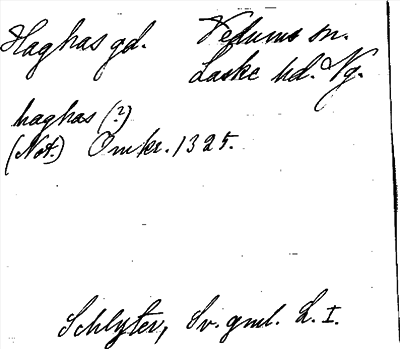 Haghas gd. Vedums sn.
Laske hd. Vg.
haghas (?)
(Not.) Omkr. 1325.
Schlyter, Sv. gml. L. I.